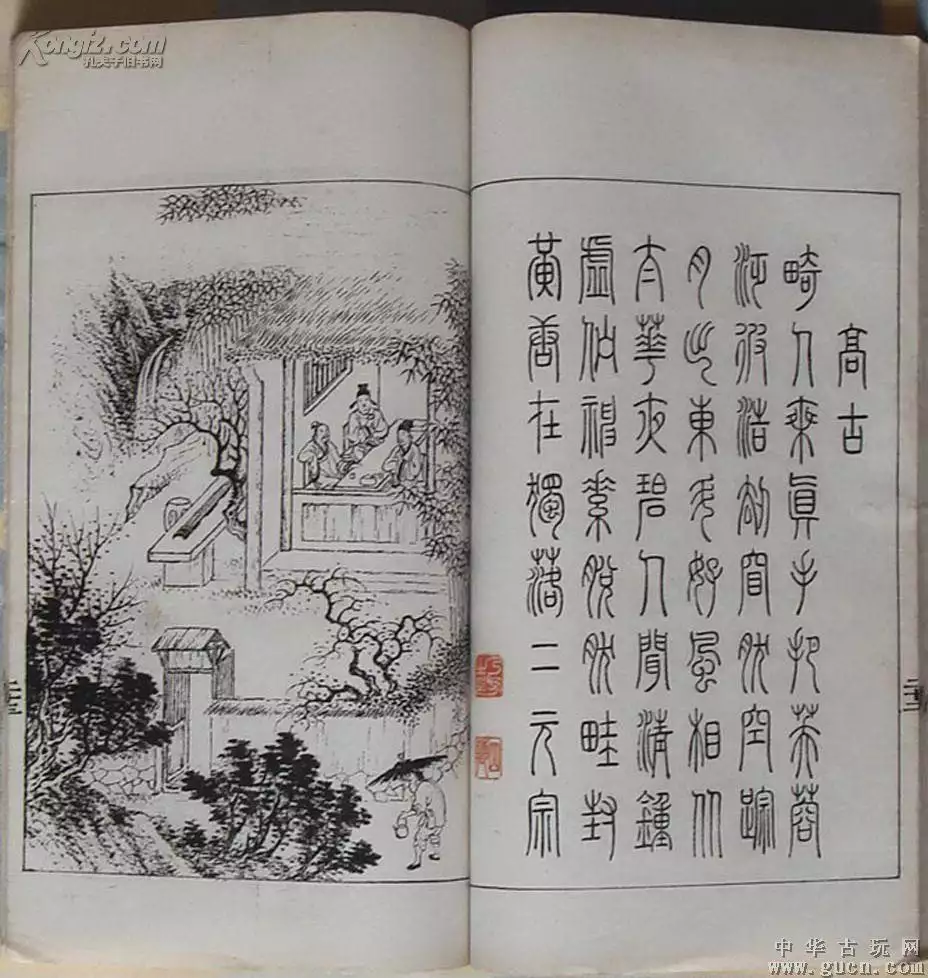 Kongfz.com
孔夫子旧书网
高古
畸人乘真手把芙蓉
汎彼浩劫窅然空蹤
月出東斗好風相从
太華夜碧人聞清鐘
虛佇神素脫然畦封
黃唐在獨落二元宗
中华古玩网
www.gucn.com